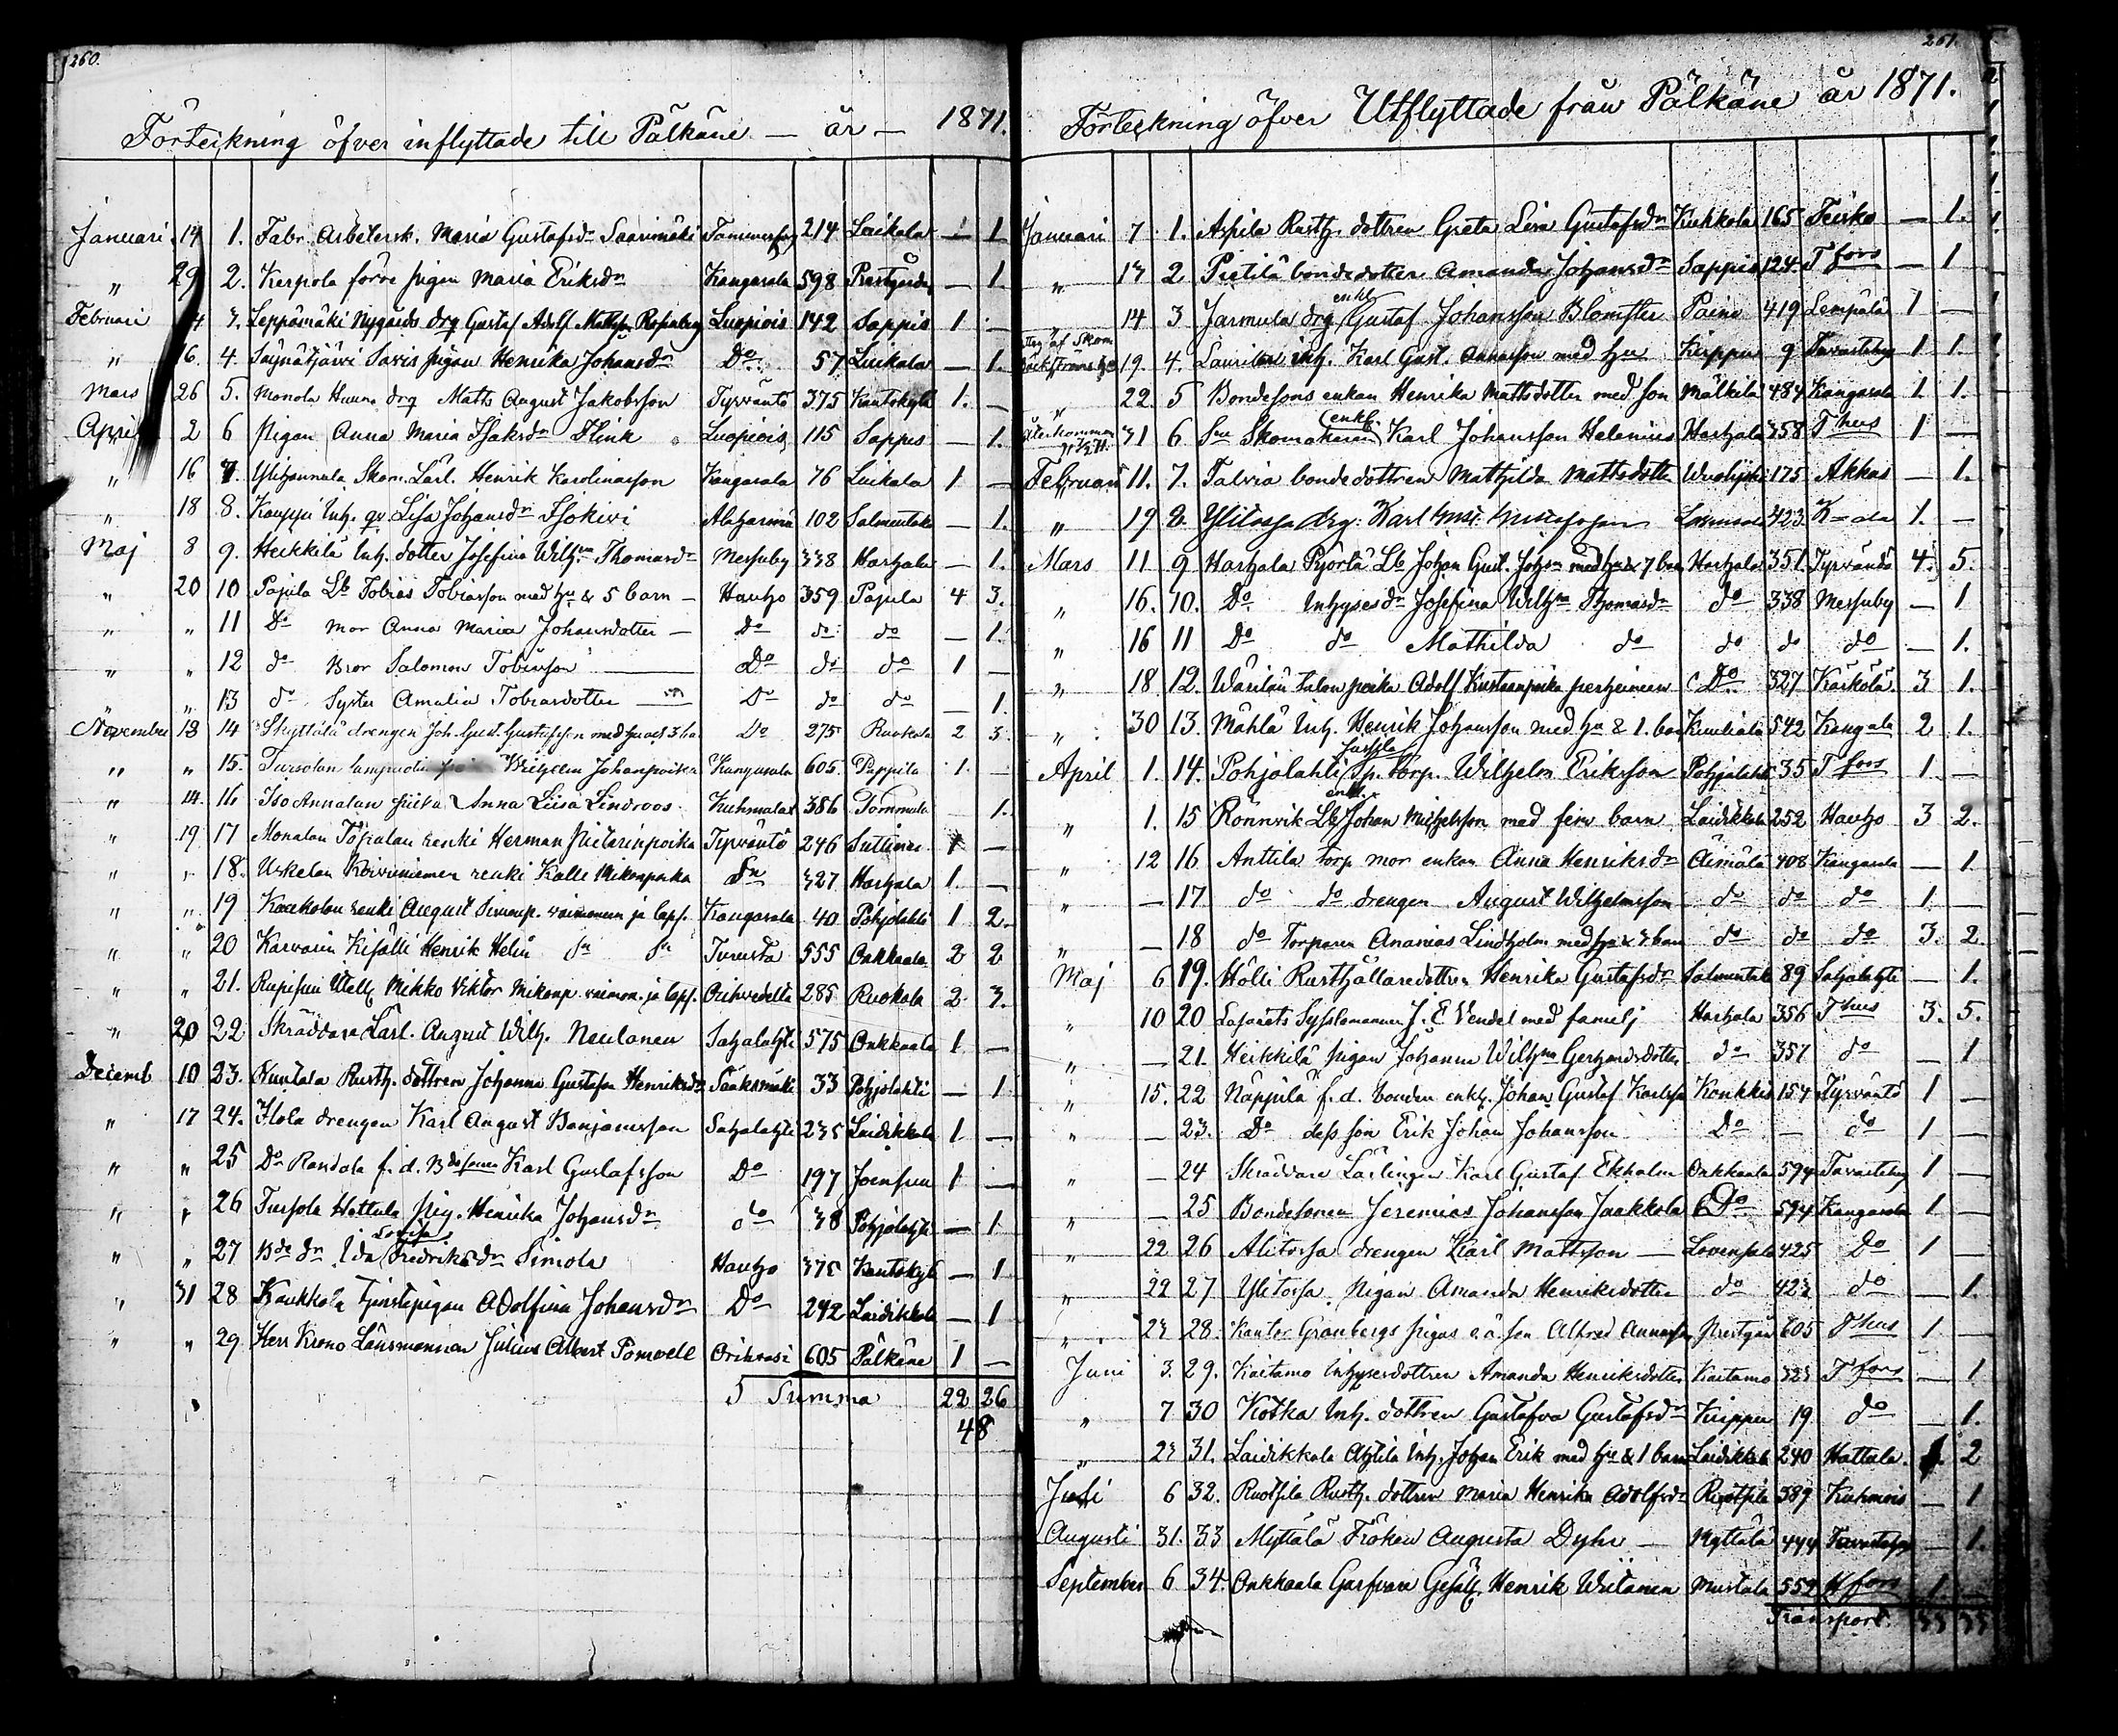 260.
Förteikning öfver inflyttade till Pälkäne — år — 1871.
Januari 14 1. Fabr. Arbetersk. Maria Gustafsdr Saarimäki Tammerfors 214 Laikala — 1
" 29 2. Kerppola förre pigan Maria Eriksdr Kangasala 598 Prestgården — 1.
Februari 4 3. Seppämäki Nygårds drg Gustaf Adolf Mattss. Rosenberg Luopiois 142 Sappis 1 —
" 16. 4. Säynätjärvi Savis pigan Henrika Johansdr Do 57 Luikala — 1.
Mars 26 5. Monola Huuna drg Matts August Jakobsson Tyrväntö 375 Kantokylä 1. —
April 2 6 Pigan Anna Maria Isaksdr Flink Luopiois 115 Sappis — 1.
" 16 7. Ylihannula Skom. Lärl. Henrik Karolinasson Kangasala 76 Luikala 1 —
" 18 8. Kauppi Inh. qv. Lisa Johansdr Isokivi Alaharmä 102 Salmentaka — 1.
Maj 8 9. Heikkilä Inh. dotter Josefina Wilhna Thomasdr Messuby 338 Harhala — 1.
" 20 10 Papila Lb Tobias Tobiasson med hu & 5 barn — Hauho 359 Papula 4 3.
" " 11 Do mor Anna Maria Johansdotter — Do do do — 1.
" " 12 do Bror Salomon Tobiasson — Do do do 1 —
" " 13 do Syster Amalia Tobiasdotter — Do do do — 1.
November 13 14 Skyttälä drengen Joh. Gust. Gustafsson med hu och 3 ba Do 275 Ruokola 2 3.
" " 15. Tursolan lampuodin Wilhelm Johanpoika Kangasala 605. Pappila 1. —
" 14. 16. Iso Annalan piika Anna Liisa Lindroos Kuhmalax 386 Tommola 1.
" 19 17 Monalan Töpsalan renki Herman Pietarinpoika Tyrväntö 246 Suttinen 1 —
" " 18. Uskelan Koivuniemen renki Kalle Mikonpoika Sn 327 Harhala 1. —
" " 19 Kaukolan renki August Simonp. vaimonsa ja laps. Kangasala 40 Pohjalahti 1 2.
" " 20 Karvarin Kisälli Henrik Helin Sn Sn Turusta 555 Onkkaala 2 2
" " 21. Rupisen Mikko Viktor Mikonp. vaimon. ja laps. Orihvedeltä 285 Ruokola 2 3.
" 20 22 Skräddare Lärl. August Wilh. Neulanen Sahalahti 575 Onkkaala 1 —
Decemb 10 23. Huntala Rusth. dottren Johanna Gustafva Henriksdr Sääksmäki 33 Pohjolahti — 1
" 17 24. Flola drengen Karl August Benjamsson Sahalahti 235 Laidikkala 1 —
" " 25 Do Randala f. d. Bdesonen Karl Gustafsson Do 197 Joensuu 1 —
" " 26 Tursola Hattula Pig. Henrika Johansdr do 38 Pohjalahti — 1
" " 27 Bde dr Ida Lovisa Fredriksdr Simola Hauho 375 Kantokylä — 1
" 31 28 Kaukkola Tjenstepigan Adolfina Johansdr Do 242 Laidikkala — 1
" " 29. Herr Krono Länsmannen Julius Albert Pomoell Orihvesi 605 Pälkäne 1 —
Summa 22 26
48
261.
Förteckning öfver Utflyttade från Pälkäne år 1871.
Januari 7 1. Arpila Rusth. dottren Greta Lisa Gustafsdr Kukkola 165 Teisko — 1.
" 13 2 Pietilä bondedotter Amanda Johansdr Sappis 124. T fors — 1
" 14 3 Jarmula drg enkl Gustaf Johansson Blomster Paino 419 Lempälä 1 —
Skom. 19. 4. Laurila inh. Karl Gust. Annasson med hu Kirppu 9 Tavastehus 1 1.
" 22. 5 Bondesons enkan Henrika Mattsdotter med son Mälkilä 484 Kangasala 1 1.
Återkommen 31 6 Sn Skomakaren enkl. Karl Johansson Helenius Harhala 358 T hus 1 —
Februari 11. 7. Talvia bondedottren Mathilda Mattsdotter 175 Akkas — 1.
" 19 8. Ylitossa drg: Karl Gust: Gustafsson 423. K—ala 1. —
Mars 11 9 Harhala Pjörlä Lb Johan Gust. Johss. med hu & 7 barn Harhala 351 Tyrväntö 4. 5.
" 16. 10. Do Inhysesdr Josefina Wilhna Thomasdr do 338 Messuby — 1
" 16 11 Do do Mathilda do do do do — 1.
" 18 12. Adolf Kustaanpoika perheineen Do. 327 Kärkölä 3 1.
" 30 13. Mählä Inh. Henrik Johansson med hu & 1. barn Kuuliala 542 Kangala 2 1.
April 1. 14. Pohjolahti Jussila Sp. Torp. Wilhelm Eriksson Pohjalahti 35 T fors 1 —
" 1. 15 Rönnvik Lb enkl. Johan Michelsson med fem barn Laidikkala 252 Hauho 3 2.
" 12 16 Anttila Torp mor enkan Anna Henriksdr Äimälä 408 Kangasala — 1.
" — 17 do do drengen August Wilhelmsson do do do 1 —
" — 18 do Torparen Ananias Lindholm med hu & 3 barn do do do 3. 2.
Maj 6 19. Hölli Rusthållaredottren Henrika Gustafsdr Salmentaka 89 Sahalahti — 1.
" 10 20 Lasarets Sysslomannen J. E. Vendel med familj Harhala 356 T hus 3. 5.
" — 21. Heikkilä pigan Johanna Wilhna Gerhardsdotter do 357 do — 1
" 15. 22 Näppilä f. d. bonden enkl. Johan Gustaf Karlsson Konkkis 154 Tyrväntö 1 —
" — 23. Do dess son Erik Johan Johansson Do — do 1 —
" — 24 Skräddare Lärlingen Karl Gustaf Ekholm Onkkaala 594 Tavastehus 1 —
" — 25 Bondesonen Jeremias Johansson Jaakkola Do 594 Kangasala 1 —
" 22 26 Alitorssa drengen Karl Mattsson — Lovensala 425 Do 1 —
" 22 27 Ylitorssa Pigan Amanda Henriksdotter do 423 do — 1.
" 23 28. Kantor Granbergs pigas o. ä. son Alfred Annasson Prestgår. 605 T hus 1 —
Juni 3. 29. Kaitamo Inhysesdottren Amanda Henriksdotter Kaitamo 323 T fors — 1
" 7 30 Kotka Inh. dottren Gustafva Gustafsdr Kirppu 19 do — 1.
" 23 31. Laidikkala Ahtila Inh. Johan Erik med hu & 1 barn Laidikkala 240 Hattula 1. 2
Juli 6 32. Ruotsila Rusth. dottren Maria Henrika Adolfsdr Ruotsila 389 Kuhmois — 1
Augusti 31. 33 Myttälä Fröken Augusta Dyhr — Myttälä 444 Tavastehus — 1.
September 6 34. Onkkaala Garfvare Gesäll. Henrik Weitanen Mustala 552 H fors 1 —
Transport. 33 33